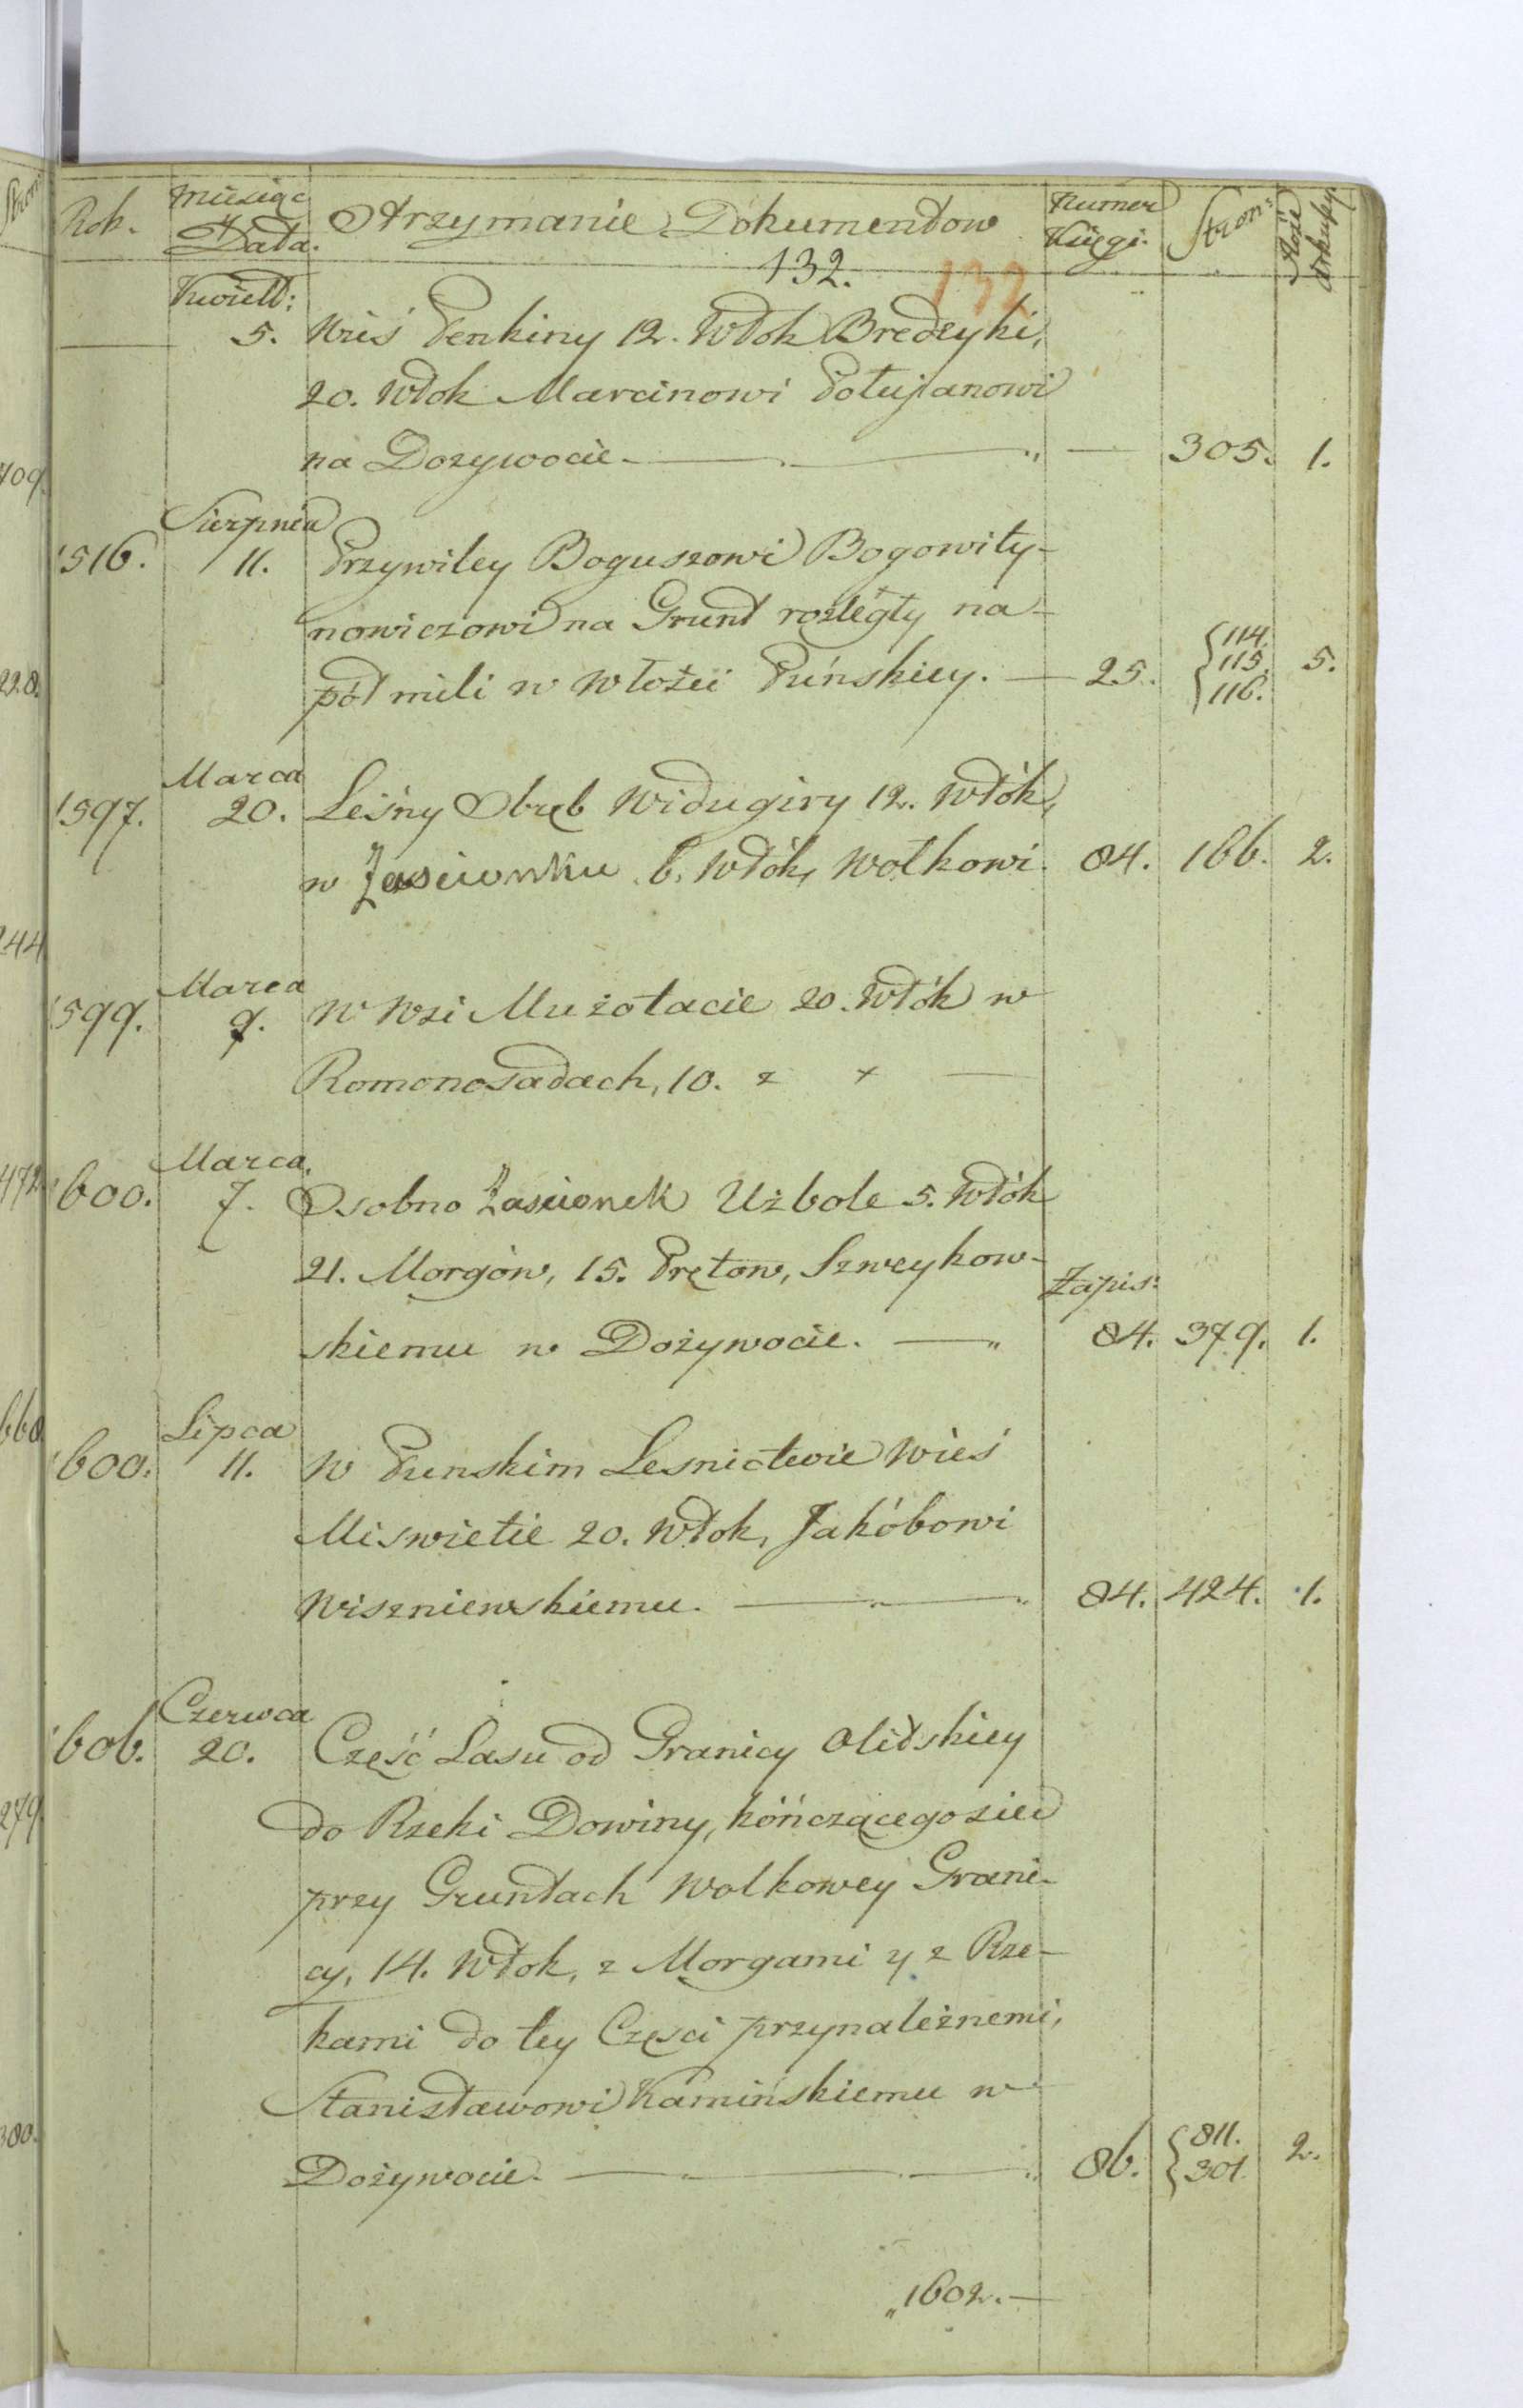 Rok. Miesiąc Data. Otrzymanie Dokumentow Numer Księgi. Stron:
132. 132
Kwiett:
5. Wieś Penkiny 12. Włok Bredeyki,
20. Włok Marcinowi Połujanowi
na Dozywocie. — 305. 1.
Sierpnia
1516. 11. Przywiley Boguszowi Bogowity-
nowiczowi na Grunt rozległy na
pół mili w Włości Puńskiey. — 25. {114. 115. 116. 5.
Marca
1597. 20. Leśny Obręb Widugiry 12. Włók,
w Zasciunku 6. Włók, Wołkowi. 84. 166. 2.
Marca
1599. 9. W Wsi Mużołacie 20. Włók w
Romonosadach, 10. z + —
Marca.
1600. 7. Osobno Zascionek Użbole 5. Włók
21. Morgów, 15. Prętow, Szweykow-
Zapis:
skiemu w Dożywocie. — 84. 379. 1.
Lipca
1600. 11. W Punskim Lesnictwie Wieś
Miswietie 20. Włok, Jakóbowi
Wiszniewskiemu. — 84. 424. 1.
Czerwca
1606. 20. Część Lasu od Granicy Olitskiey
do Rzeki Dowiny, kończącego sie
przy Gruntach Wolkowey Grani-
cy, 14. Włok, z Morgami y z Rze-
kami do tey Częsci przynależnemi,
Stanisławowi Kamińskiemu w
Dożywocie. — 86. {811. 301. 2.
„1602. —